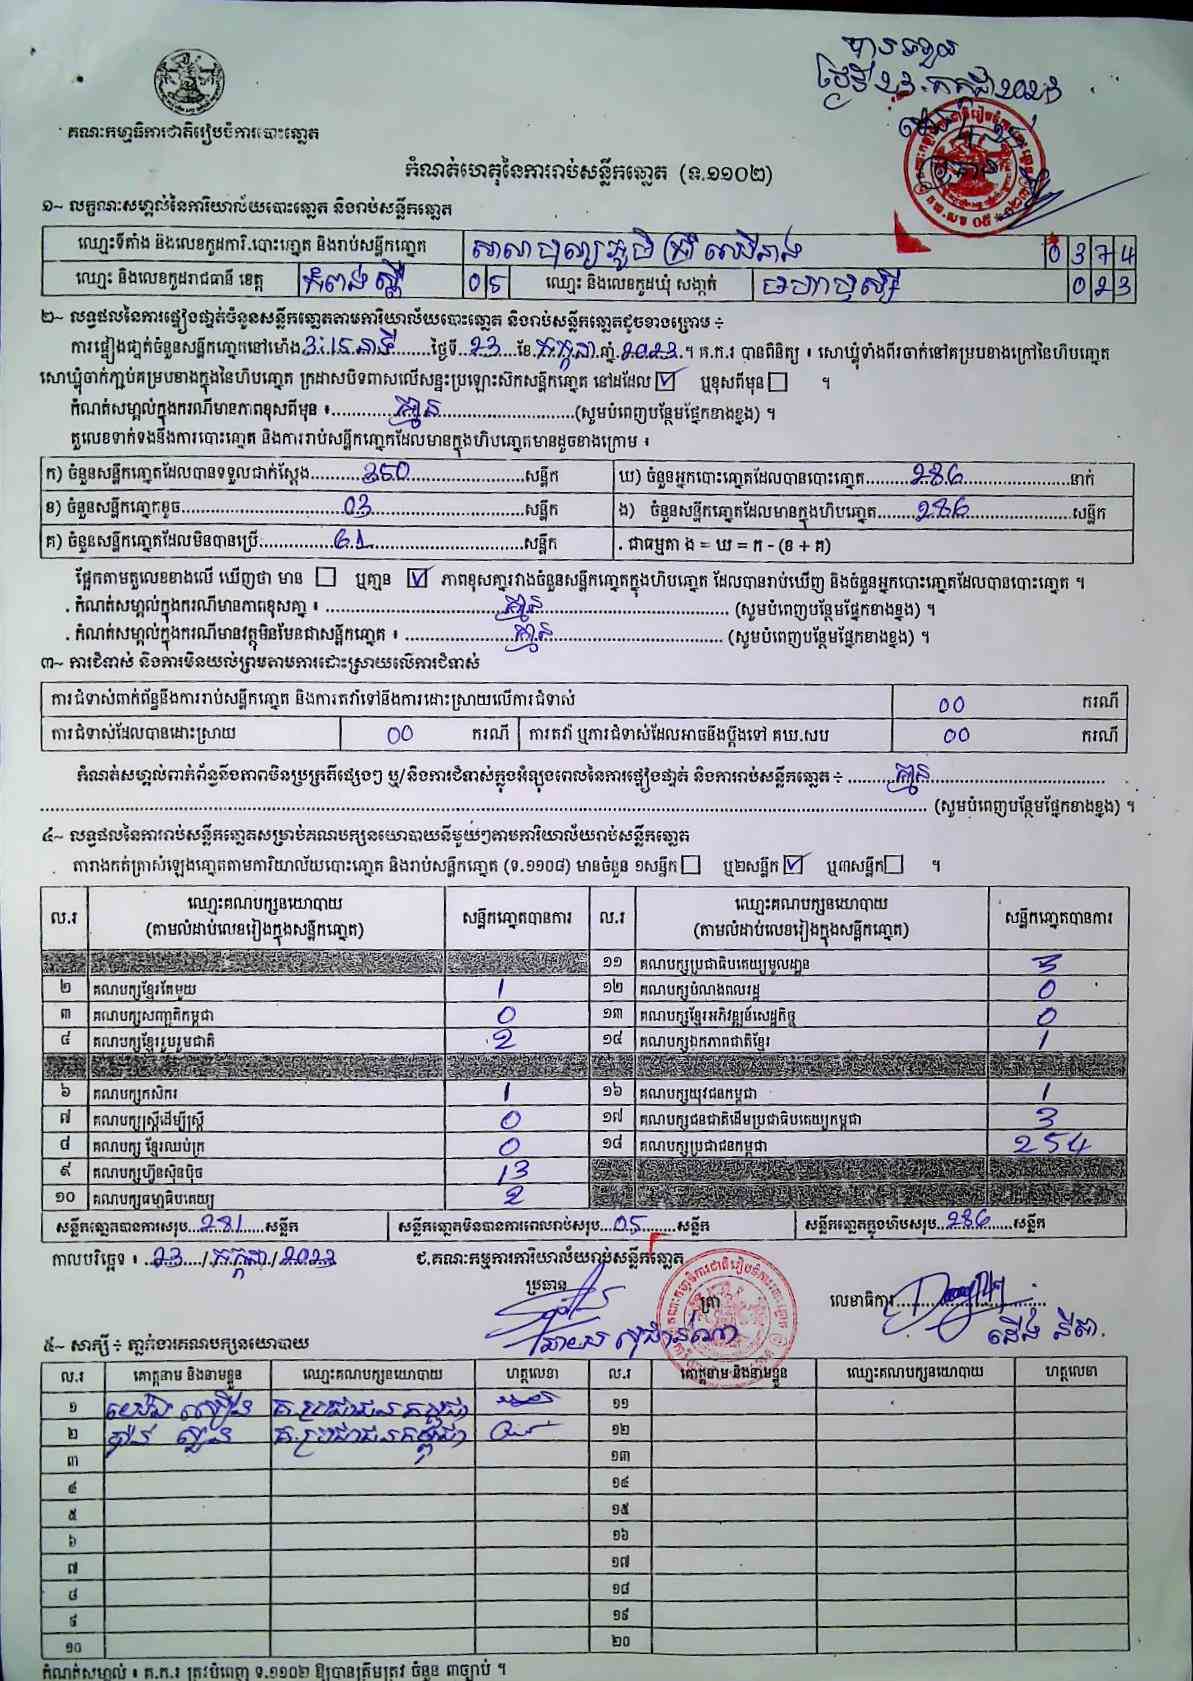 គណៈកម្មាធិការជាតិរៀបចំការបោះឆ្នោត
បានទទួល
ថ្ងៃទី 23 កក្កដា 2023
កំណត់ហេតុនៃការរាប់សន្លឹកឆ្នោត (ទ.១១០២)
១~ លក្ខណៈសម្គាល់នៃការិយាល័យបោះឆ្នោត និងរាប់សន្លឹកឆ្នោត
ឈ្មោះទីតាំង និងលេខកូដការិ.បោះឆ្នោត និងរាប់សន្លឹកឆ្នោត 0 3 7 4
ឈ្មោះ និងលេខកូដរាជធានី ខេត្ត កំពង់ស្ពឺ 0 5 ឈ្មោះ និងលេខកូដឃុំ សង្កាត់ មហាឫស្សី 0 2 3
២~ លទ្ធផលនៃការផ្ទៀងផ្ទាត់ចំនួនសន្លឹកឆ្នោតតាមការិយាល័យបោះឆ្នោត និងរាប់សន្លឹកឆ្នោតដូចខាងក្រោម ÷
ការផ្ទៀងផ្ទាត់ចំនួនសន្លឹកឆ្នោតនៅម៉ោង 3:15 នាទី ថ្ងៃទី 23 ខែ កក្កដា ឆ្នាំ 2023 ។ គ.ក.រ បានពិនិត្យ ៖ សោឃ្លុំទាំងពីរចាក់នៅគម្របខាងក្រៅនៃហិបឆ្នោត
សោឃ្លុំចាក់ភ្ជាប់គម្របខាងក្នុងនៃហិបឆ្នោត ក្រដាសបិទពាសលើសន្ទះប្រឡោះស៊កសន្លឹកឆ្នោត នៅដដែល ☑ ឬខុសពីមុន ☐ ។
កំណត់សម្គាល់ក្នុងករណីមានភាពខុសពីមុន ៖ គ្មាន (សូមបំពេញបន្ថែមផ្នែកខាងខ្នង) ។
តួលេខទាក់ទងនឹងការបោះឆ្នោត និងការរាប់សន្លឹកឆ្នោតដែលមានក្នុងហិបឆ្នោតមានដូចខាងក្រោម ៖
ក) ចំនួនសន្លឹកឆ្នោតដែលបានទទួលជាក់ស្តែង 350 សន្លឹក ឃ) ចំនួនអ្នកបោះឆ្នោតដែលបានបោះឆ្នោត 286 នាក់
ខ) ចំនួនសន្លឹកឆ្នោតខូច 03 សន្លឹក ង) ចំនួនសន្លឹកឆ្នោតដែលមានក្នុងហិបឆ្នោត 286 សន្លឹក
គ) ចំនួនសន្លឹកឆ្នោតដែលមិនបានប្រើ 61 សន្លឹក . ជាធម្មតា ង = ឃ = ក - (ខ + គ)
ផ្អែកតាមតួលេខខាងលើ ឃើញថា មាន ☐ ឬគ្មាន ☑ ភាពខុសគ្នារវាងចំនួនសន្លឹកឆ្នោតក្នុងហិបឆ្នោត ដែលបានរាប់ឃើញ និងចំនួនអ្នកបោះឆ្នោតដែលបានបោះឆ្នោត ។
. កំណត់សម្គាល់ក្នុងករណីមានភាពខុសគ្នា ៖ គ្មាន (សូមបំពេញបន្ថែមផ្នែកខាងខ្នង) ។
. កំណត់សម្គាល់ក្នុងករណីមានវត្ថុមិនមែនជាសន្លឹកឆ្នោត ៖ គ្មាន (សូមបំពេញបន្ថែមផ្នែកខាងខ្នង) ។
៣~ ការជំទាស់ និងការមិនយល់ព្រមតាមការដោះស្រាយលើការជំទាស់
ការជំទាស់ពាក់ព័ន្ធនឹងការរាប់សន្លឹកឆ្នោត និងការតវ៉ាទៅនឹងការដោះស្រាយលើការជំទាស់ 00 ករណី
ការជំទាស់ដែលបានដោះស្រាយ 00 ករណី ការតវ៉ា ឬការជំទាស់ដែលអាចនឹងប្តឹងទៅ គឃ.សប 00 ករណី
កំណត់សម្គាល់ពាក់ព័ន្ធនឹងភាពមិនប្រក្រតីផ្សេងៗ ឬ/និងការជំទាស់ក្នុងអំឡុងពេលនៃការផ្ទៀងផ្ទាត់ និងការរាប់សន្លឹកឆ្នោត ÷ គ្មាន
(សូមបំពេញបន្ថែមផ្នែកខាងខ្នង) ។
៤~ លទ្ធផលនៃការរាប់សន្លឹកឆ្នោតសម្រាប់គណបក្សនយោបាយនីមួយៗតាមការិយាល័យរាប់សន្លឹកឆ្នោត
តារាងកត់ត្រាសំឡេងឆ្នោតតាមការិយាល័យបោះឆ្នោត និងរាប់សន្លឹកឆ្នោត (ទ.១១០៨) មានចំនួន ១សន្លឹក ☐ ឬ២សន្លឹក ☑ ឬ៣សន្លឹក ☐ ។
ល.រ ឈ្មោះគណបក្សនយោបាយ (តាមលំដាប់លេខរៀងក្នុងសន្លឹកឆ្នោត) សន្លឹកឆ្នោតបានការ ល.រ ឈ្មោះគណបក្សនយោបាយ (តាមលំដាប់លេខរៀងក្នុងសន្លឹកឆ្នោត) សន្លឹកឆ្នោតបានការ
១១ គណបក្សប្រជាធិបតេយ្យមូលដ្ឋាន 3
២ គណបក្សខ្មែរតែមួយ 1 ១២ គណបក្សបំណងពលរដ្ឋ 0
៣ គណបក្សសញ្ជាតិកម្ពុជា 0 ១៣ គណបក្សខ្មែរអភិវឌ្ឍន៍សេដ្ឋកិច្ច 0
៤ គណបក្សខ្មែររួបរួមជាតិ 2 ១៤ គណបក្សឯកភាពជាតិខ្មែរ 1
៦ គណបក្សកសិករ 1 ១៦ គណបក្សយុវជនកម្ពុជា 1
៧ គណបក្សស្ត្រីដើម្បីស្ត្រី 0 ១៧ គណបក្សជនជាតិដើមប្រជាធិបតេយ្យកម្ពុជា 3
៨ គណបក្ស ខ្មែរឈប់ក្រ 0 ១៨ គណបក្សប្រជាជនកម្ពុជា 254
៩ គណបក្សហ៊្វុនស៊ិនប៉ិច 13
១០ គណបក្សធម្មាធិបតេយ្យ 2
សន្លឹកឆ្នោតបានការសរុប 281 សន្លឹក សន្លឹកឆ្នោតមិនបានការពេលរាប់សរុប 05 សន្លឹក សន្លឹកឆ្នោតក្នុងហិបសរុប 286 សន្លឹក
កាលបរិច្ឆេទ ៖ 23 / កក្កដា / 2023 ជ.គណៈកម្មការការិយាល័យរាប់សន្លឹកឆ្នោត
ប្រធាន ត្រា លេខាធិការ
៥~ សាក្សី ÷ ភ្នាក់ងារគណបក្សនយោបាយ
ល.រ គោត្តនាម និងនាមខ្លួន ឈ្មោះគណបក្សនយោបាយ ហត្ថលេខា ល.រ គោត្តនាម និងនាមខ្លួន ឈ្មោះគណបក្សនយោបាយ ហត្ថលេខា
១ គ.ប្រជាជនកម្ពុជា ១១
២ គ.ប្រជាជនកម្ពុជា ១២
៣ ១៣
៤ ១៤
៥ ១៥
៦ ១៦
៧ ១៧
៨ ១៨
៩ ១៩
១០ ២០
កំណត់សម្គាល់ ៖ គ.ក.រ ត្រូវបំពេញ ទ.១១០២ ឱ្យបានត្រឹមត្រូវ ចំនួន ៣ច្បាប់ ។